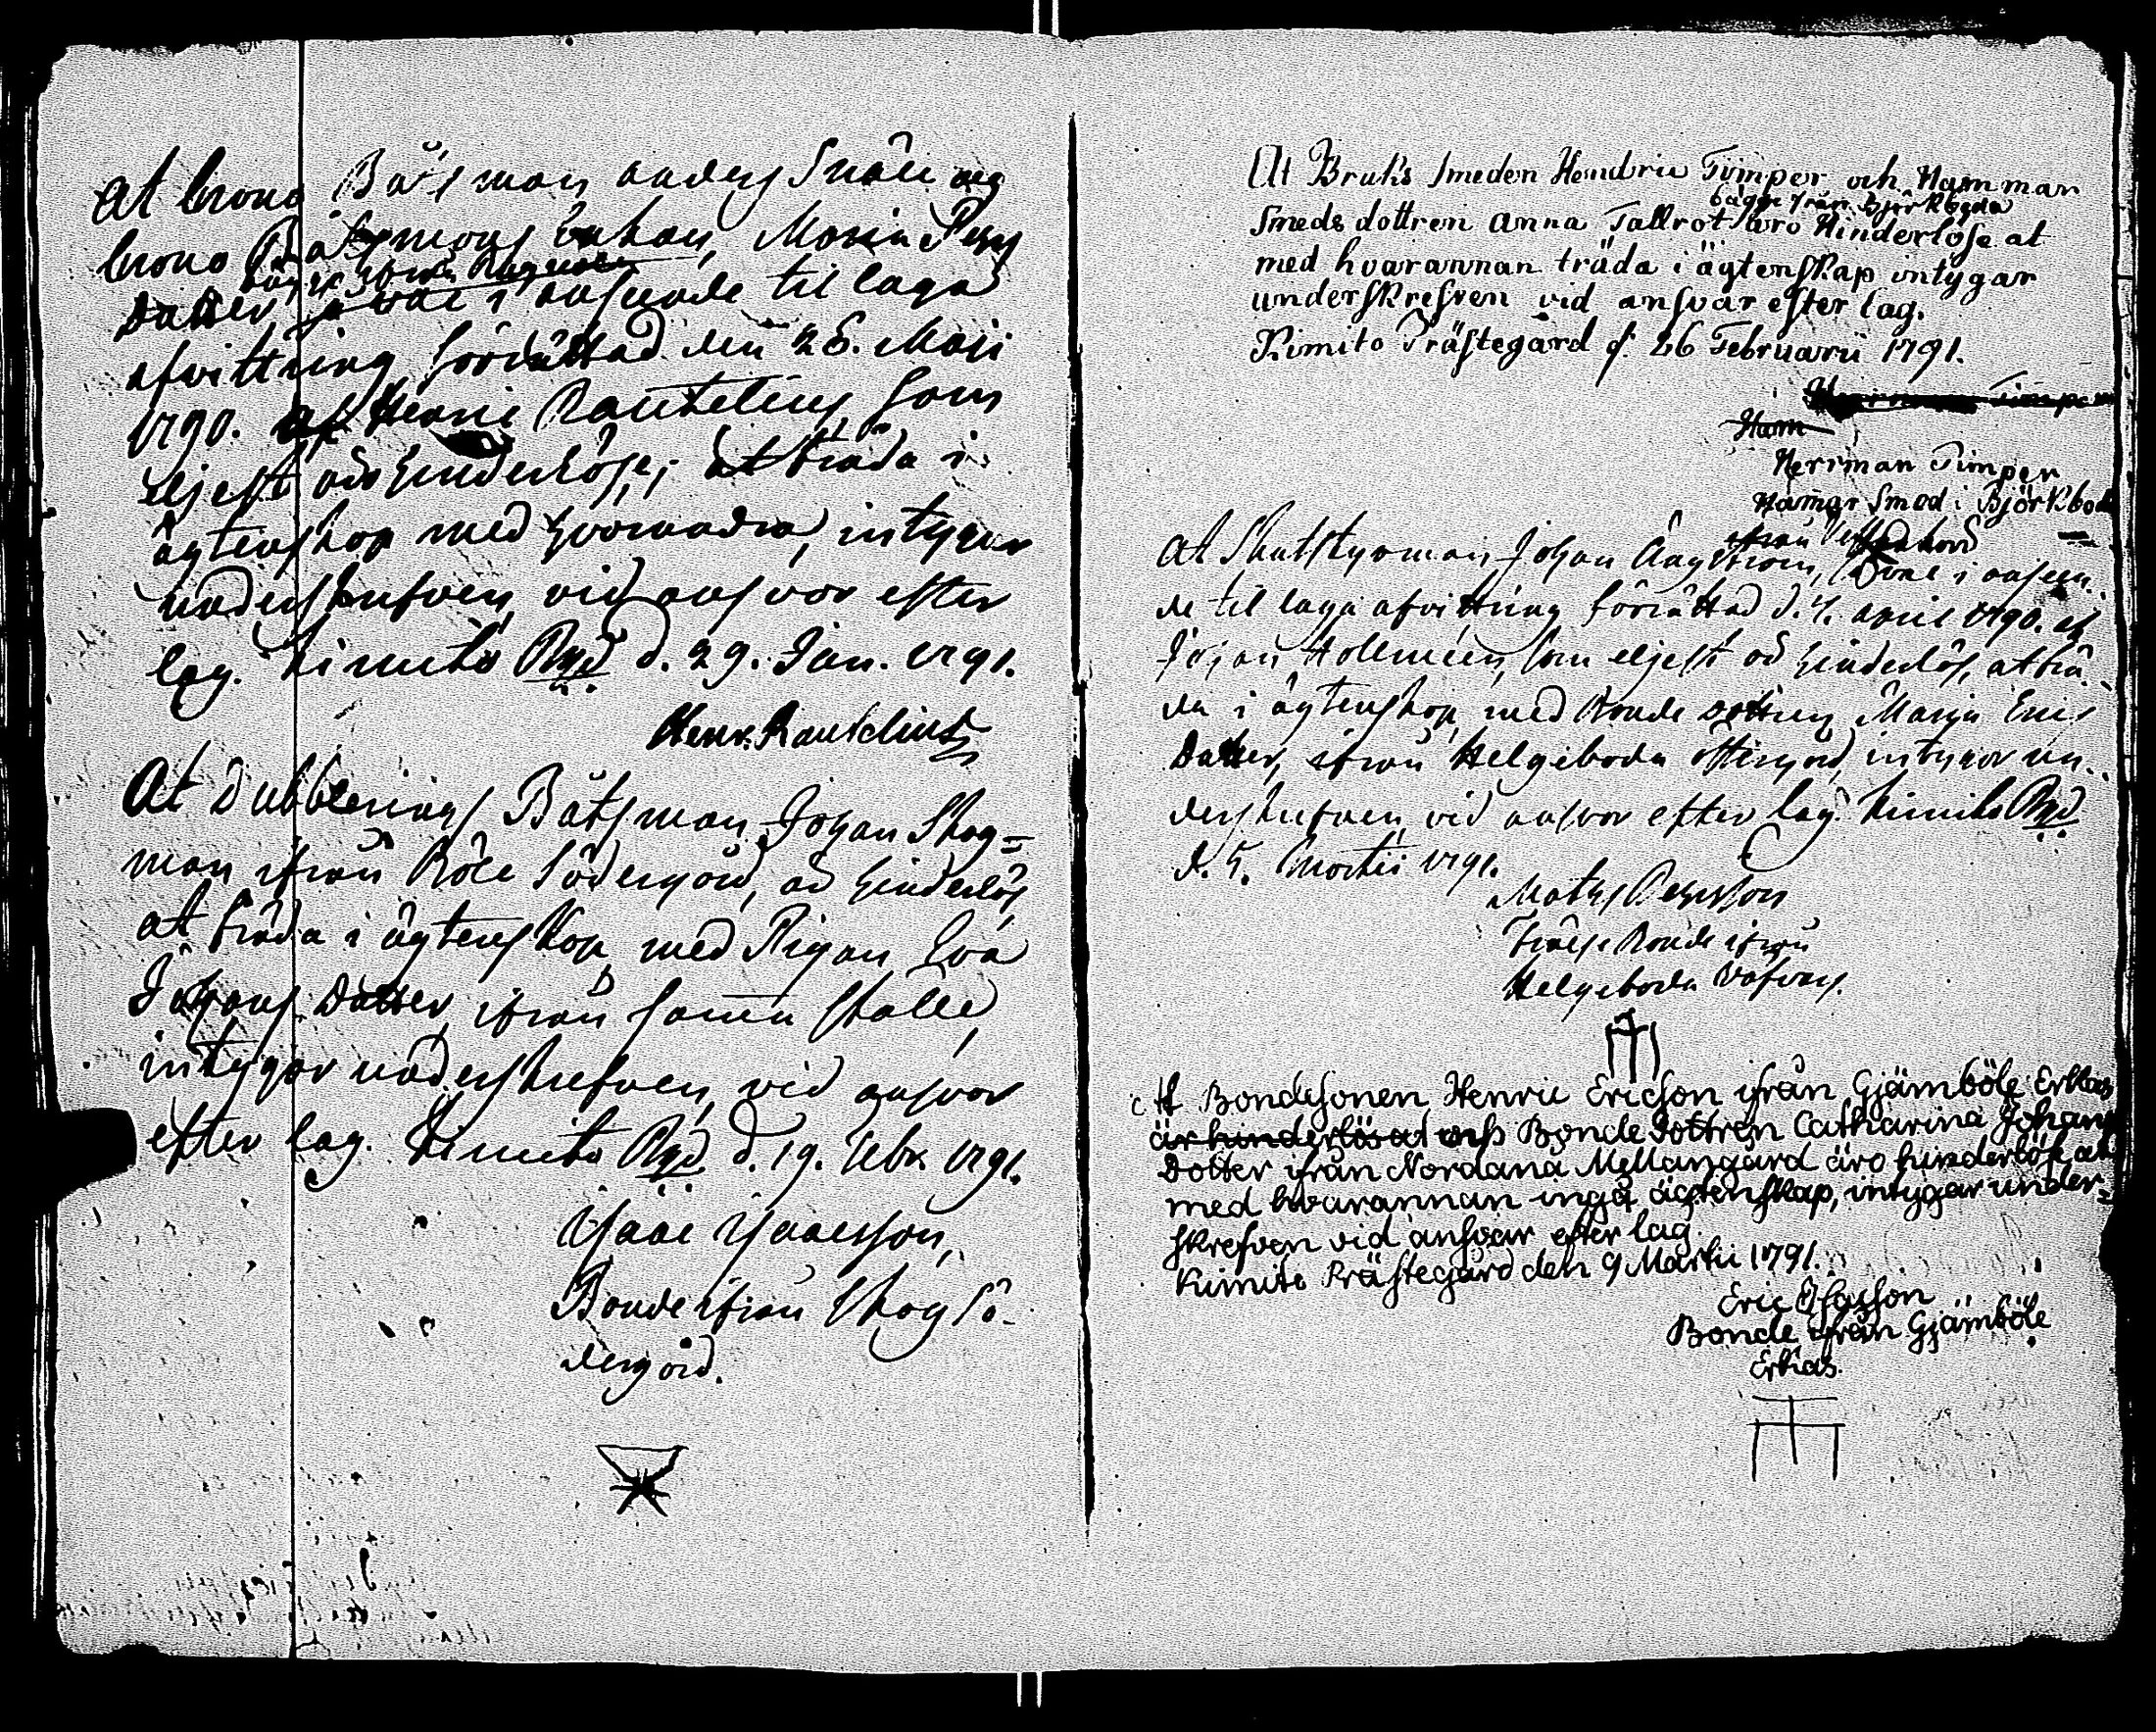 At Crono Båtsman Anders Snäll och
Crono Båtsmans Enkan, Maria Pehrs
bägge ifrån
Dotter, så väl i anseende til laga
afvittring förrättad den 28. Maji
1790. af Henric Rautelius, som
eljest äro hinderlöse, at träda i
ägtenskap med hvarandra, intygar
underskrefven, vid answar efter
lag. Kimito Pgd d. 29. Jan. 1791.
Henr. Rautelius
At Dubblerings Båtsman Johan Skog=
man ifrån Böle Södergård, är hinderlös
at träda i ägtenskap med Pigan Eva
Johans Dotter, ifrån samma ställe,
intygar underskrefven, vid answar
efter lag. Kimito Pgd d. 19. Febr. 1791.
Isaac Isaacsson,
Bonde ifrån Skog Sö-
dergård.
At Bruks Smeden Hendric Timper och Hamman
bägge från Björkboda
Smeds dottren Anna Tallrot äro Hinderlöse at
med hvarannan träda i ägtenskap intygar
underskrefven vid answar efter lag.
Kimito Prästegård d. 26 Februarii 1791.
Herrman Timper
Ham
Herrman Timper
Hamar Smed i Björkbod
ifrån
At Skutstyrman Johan Ångström, så väl i anseen-
de til laga afvittring förrättad d. 7. April 1790. af
Johan Hollmén, som eljest är hinderlös, at trä-
da i ägtenskap med Bonde Dottren Maria Erics
Dotter, ifrån Helgeboda Östergård, intygar un-
derskrefven, vid answar efter lag. Kimito Pgd
d. 5. Martii 1791.
Mats Pehrsson
Frälse Bonde ifrån
Helgeboda Våfvars.
At Bondesonen Henric Ericson ifrån Gjämböle Erkas
är hinderlös at och Bonde dottren Catharina Johans
Dotter ifrån Nordanå Mellangård äro hinderlöse at
med hvarannan ingå ägtenskap, intygar under=
skrefven vid answar efter lag.
Kimito Prästegård den 9 Martii 1791.
Eric
Bonde ifrån Gjämböle
Erkas.